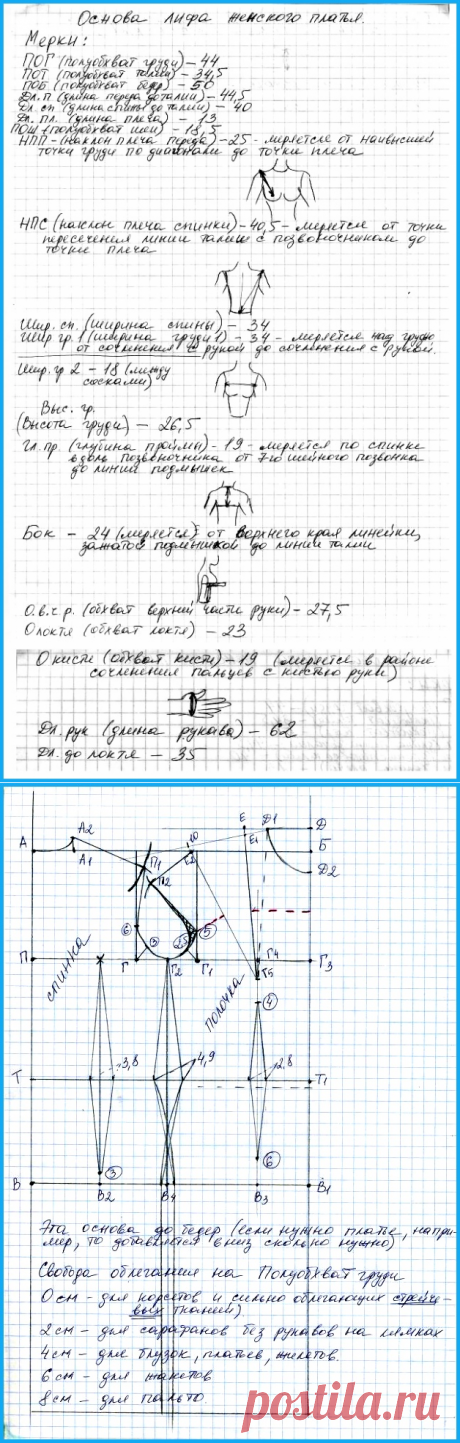 Основа лифа женского платья.
Мерки:
ПОГ (полуобхват груди) – 44
ПОТ (полуобхват талии) – 34,5
ПОБ (полуобхват бедер) – 50
Дл. п (длина переда до талии) – 44,5
Дл. сп. (длина спины до талии) – 40
Дл. пл. (длина плеча) – 13
ПОШ (полуобхват шеи) – 18,5
НПП – (наклон плеча переда) – 25 – меряется от наивысшей
точки груди по диагонали до точки плеча
НПС (наклон плеча спинки) – 40,5 – меряется от точки
пересечения линии талии с позвоночником до
точки плеча
Шир. сп. (ширина спины) – 34
Шир гр. 1 (ширина груди 1) – 34 – меряется над грудью
от сочленения с рукой до сочленения с рукой.
Шир. гр 2 – 18 (между
сосками)
Выс. гр.
(Высота груди) – 26,5
Гл. пр. (глубина проймы) – 19 – меряется по спинке
вдоль позвоночника от 7-го шейного позвонка
до линии подмышек
Бок – 24 (меряется) от верхнего края линейки,
зажатой подмышкой до линии талии
О.в.ч.р. (обхват верхней части руки) – 27,5
О локтя (обхват локтя) – 23
О кисти (обхват кисти) – 19 (меряется в районе
сочленения пальцев с кистью руки)
Дл. рук (длина рукава) – 62
Дл. до локтя – 35
А А2 А1 П1 П2 10 Е2 Е Е1 Д1 Д Б Д2
6 3 2,5 5
П Г Г2 Г1 Г4 Г5 Г3
спинка полочка
4
Т 3,8 4,9 2,8 Т1
3 6
В В2 В4 В3 В1
Эта основа до бедер (если нужно платье, напри-
мер, то добавляется вниз сколько нужно)
Свобода облегания на Полуобхват груди
0 см – для корсетов и сильно облегающих стрейче-
вых тканей)
2 см – для сарафанов без рукавов на лямках
4 см – для блузок, платьев, жилетов.
6 см – для жакетов
8 см – для пальто.
postila.ru